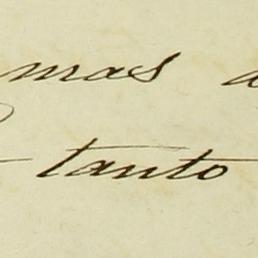 mas
tanto